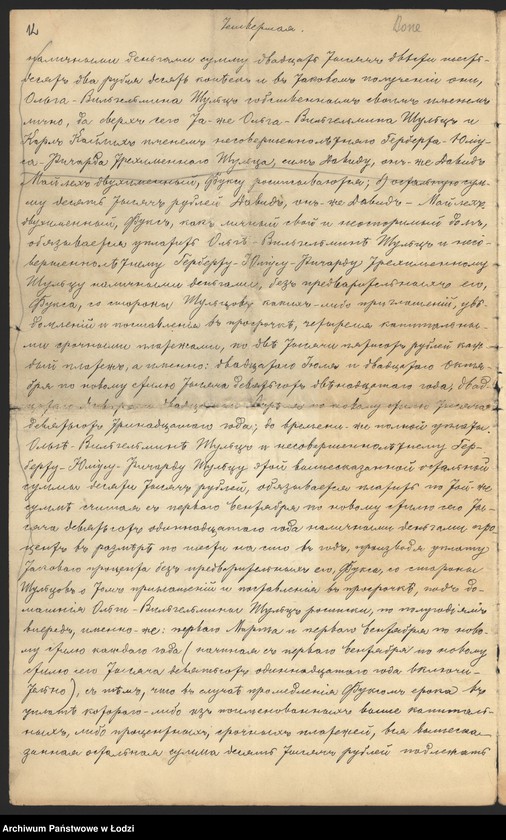 12
Четвертая.
Done
наличными деньгами сумму двадцать тысячъ двѣсти шесть-
десятъ два рубля десять копѣекъ и въ таковомъ полученіи они,
Ольга-Вильгельмина Шульцъ собственнымъ своимъ именемъ
лично, да сверхъ сего та-же Ольга-Вильгельмина Шульцъ и
Карлъ именемъ несовершеннолѣтняго Герберта-Юлiу-
са-Ричарда трехименнаго Шульца, симъ Давиду, онъ-же Давидъ
Майлехъ двухименный, Фуксу росписываются; В) остальную сум-
му десять тысячъ рублей Давидъ, онъ-же Давидъ-Майлехъ
двухименный, Фуксъ, какъ личный свой и неоспоримый долгъ,
обязывается уплатить Ольгѣ-Вильгельминѣ Шульцъ и несо-
вершеннолѣтнему Герберту-Юлiусу-Ричарду трехименному
Шульцу наличными деньгами, безъ предварительныхъ его,
Фукса, со стороны Шульцовъ какихъ-либо приглашеній, увѣ-
домленій и поставленія въ просрочкѣ, четырьмя капитальны-
ми срочными платежами, по двѣ тысячи пятьсотъ рублей каж-
дый платежъ, а именно: двадцатаго Іюля и двадцатаго Октя-
бря по новому стилю тысяча девятьсотъ двѣнадцатаго года, двад-
цатаго и двадцатаго по новому стилю тысяча
девятьсотъ тринадцатаго года; до времени-же полной уплаты
Ольгѣ-Вильгельминѣ Шульцъ и несовершеннолѣтнему Гер-
берту-Юлiусу-Ричарду Шульцу этой вышесказанной остальной
суммы десяти тысячъ рублей, обязывается платить по той-же
суммѣ считая съ перваго Сентября по новому стилю сего ты-
сяча девятьсотъ одиннадцатаго года наличными деньгами, про-
центъ въ размѣрѣ по шести на сто въ годъ, производя уплату
таковаго процента безъ предварительныхъ его, Фукса, со стороны
Шульцовъ о томъ приглашеній и поставленія въ просрочкѣ, подъ до-
машнія Ольги-Вильгельмины Шульцъ росписки, по полугодіямъ
впередъ, именно-же: перваго Марта и перваго Сентября по ново-
му стилю каждаго года (начиная съ перваго Сентября по новому
стилю сего тысяча девятьсотъ одиннадцатаго года включи-
тельно), съ тѣмъ, что въ случаѣ промедленія Фуксомъ срока въ
уплатѣ котораго-либо изъ поименованныхъ выше капиталь-
ныхъ, либо процентныхъ, срочныхъ платежей, вся вышеска-
занная остальная сумма десять тысячъ рублей подлежать
Archiwum Państwowe w Łodzi